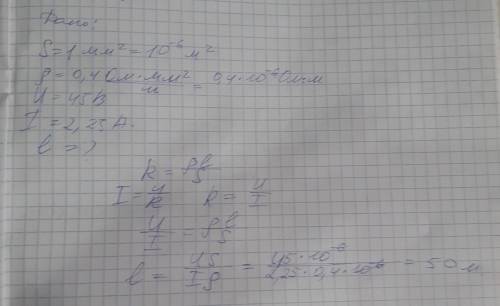 Дано:
S = 1 мм² = 10⁻⁶ м²
ρ = 0,4 Ом·мм²/м = 0,4·10⁻⁶ Ом·м
U = 45В
I = 2,25А.
l = ?
R = ρl/S
I = U/R R = U/I
U/I = ρ l/S
l = US/Iρ = 45·10⁻⁶/2,25·0,4·10⁻⁶ = 50 м